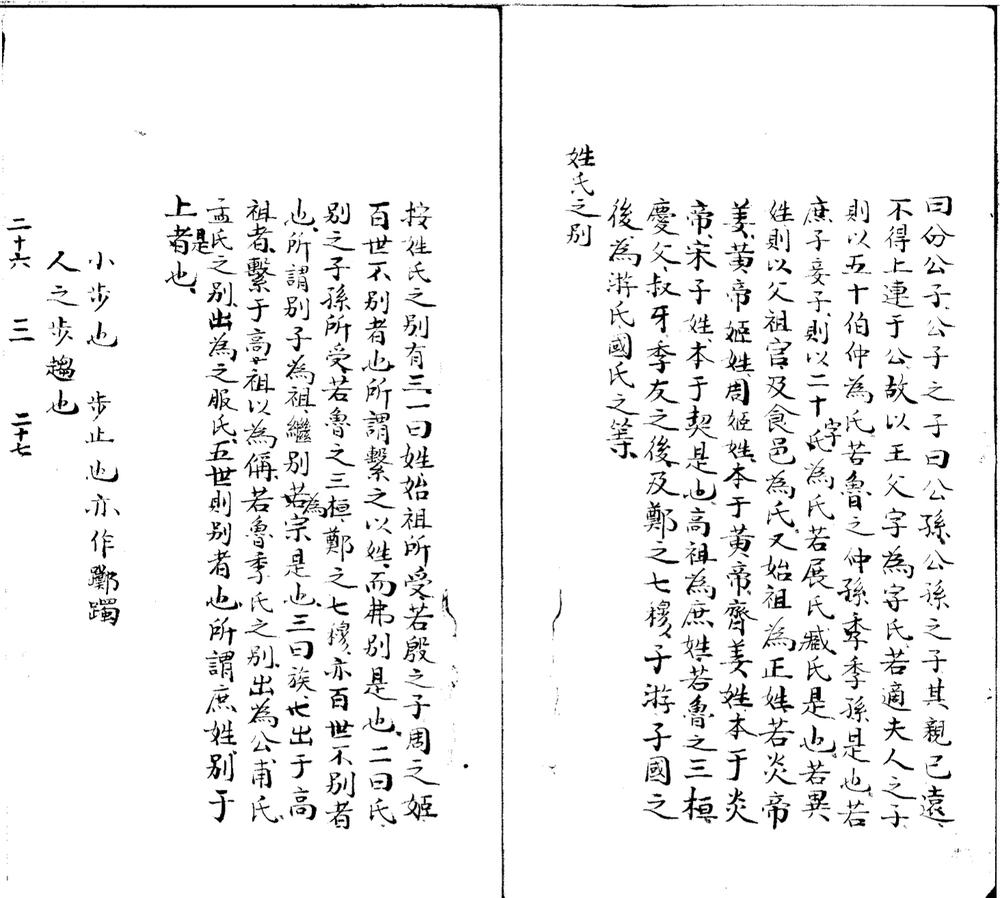 曰公公子、公子之子曰公孫、公孫之子其親已遠、
不得上連于公、故以王父字為字氏、若適夫人之子
則以五十伯仲為氏若魯之仲孫季季孫是也、若
庶子妾子、則以二十字氏為氏、若展氏臧氏是也、若異
姓則以父祖官及食邑為氏、又始祖為正姓、若炎帝
姜、黄帝姬姓、周姬姓、本于黄帝、齊姜姓、本于炎
帝、宋子姓、本于契是也、高祖為庶姓、若魯之三桓、
慶父、叔牙季友之後及鄭之七穆、子游子國之
後為游氏國氏之等、
姓氏之別
按姓氏之别有三、一曰姓始祖所受、若殷之子周之姬、
百世不別者也所謂繫之以姓、而弗別是也、二曰氏、
别之子孫所受、若魯之三桓、鄭之七穆、亦百世不別者
也、所謂別子為祖、繼別為若宗是也、三曰族也出于高
祖者、繫于高祖以為偁、若魯季氏之别、出為公甫氏、
孟氏之别、出為之服氏、五世則别者也、所謂庶姓别于
上者是也、
小步也　步止也亦作躑躅
人之步趨也
二十六　三　二十七